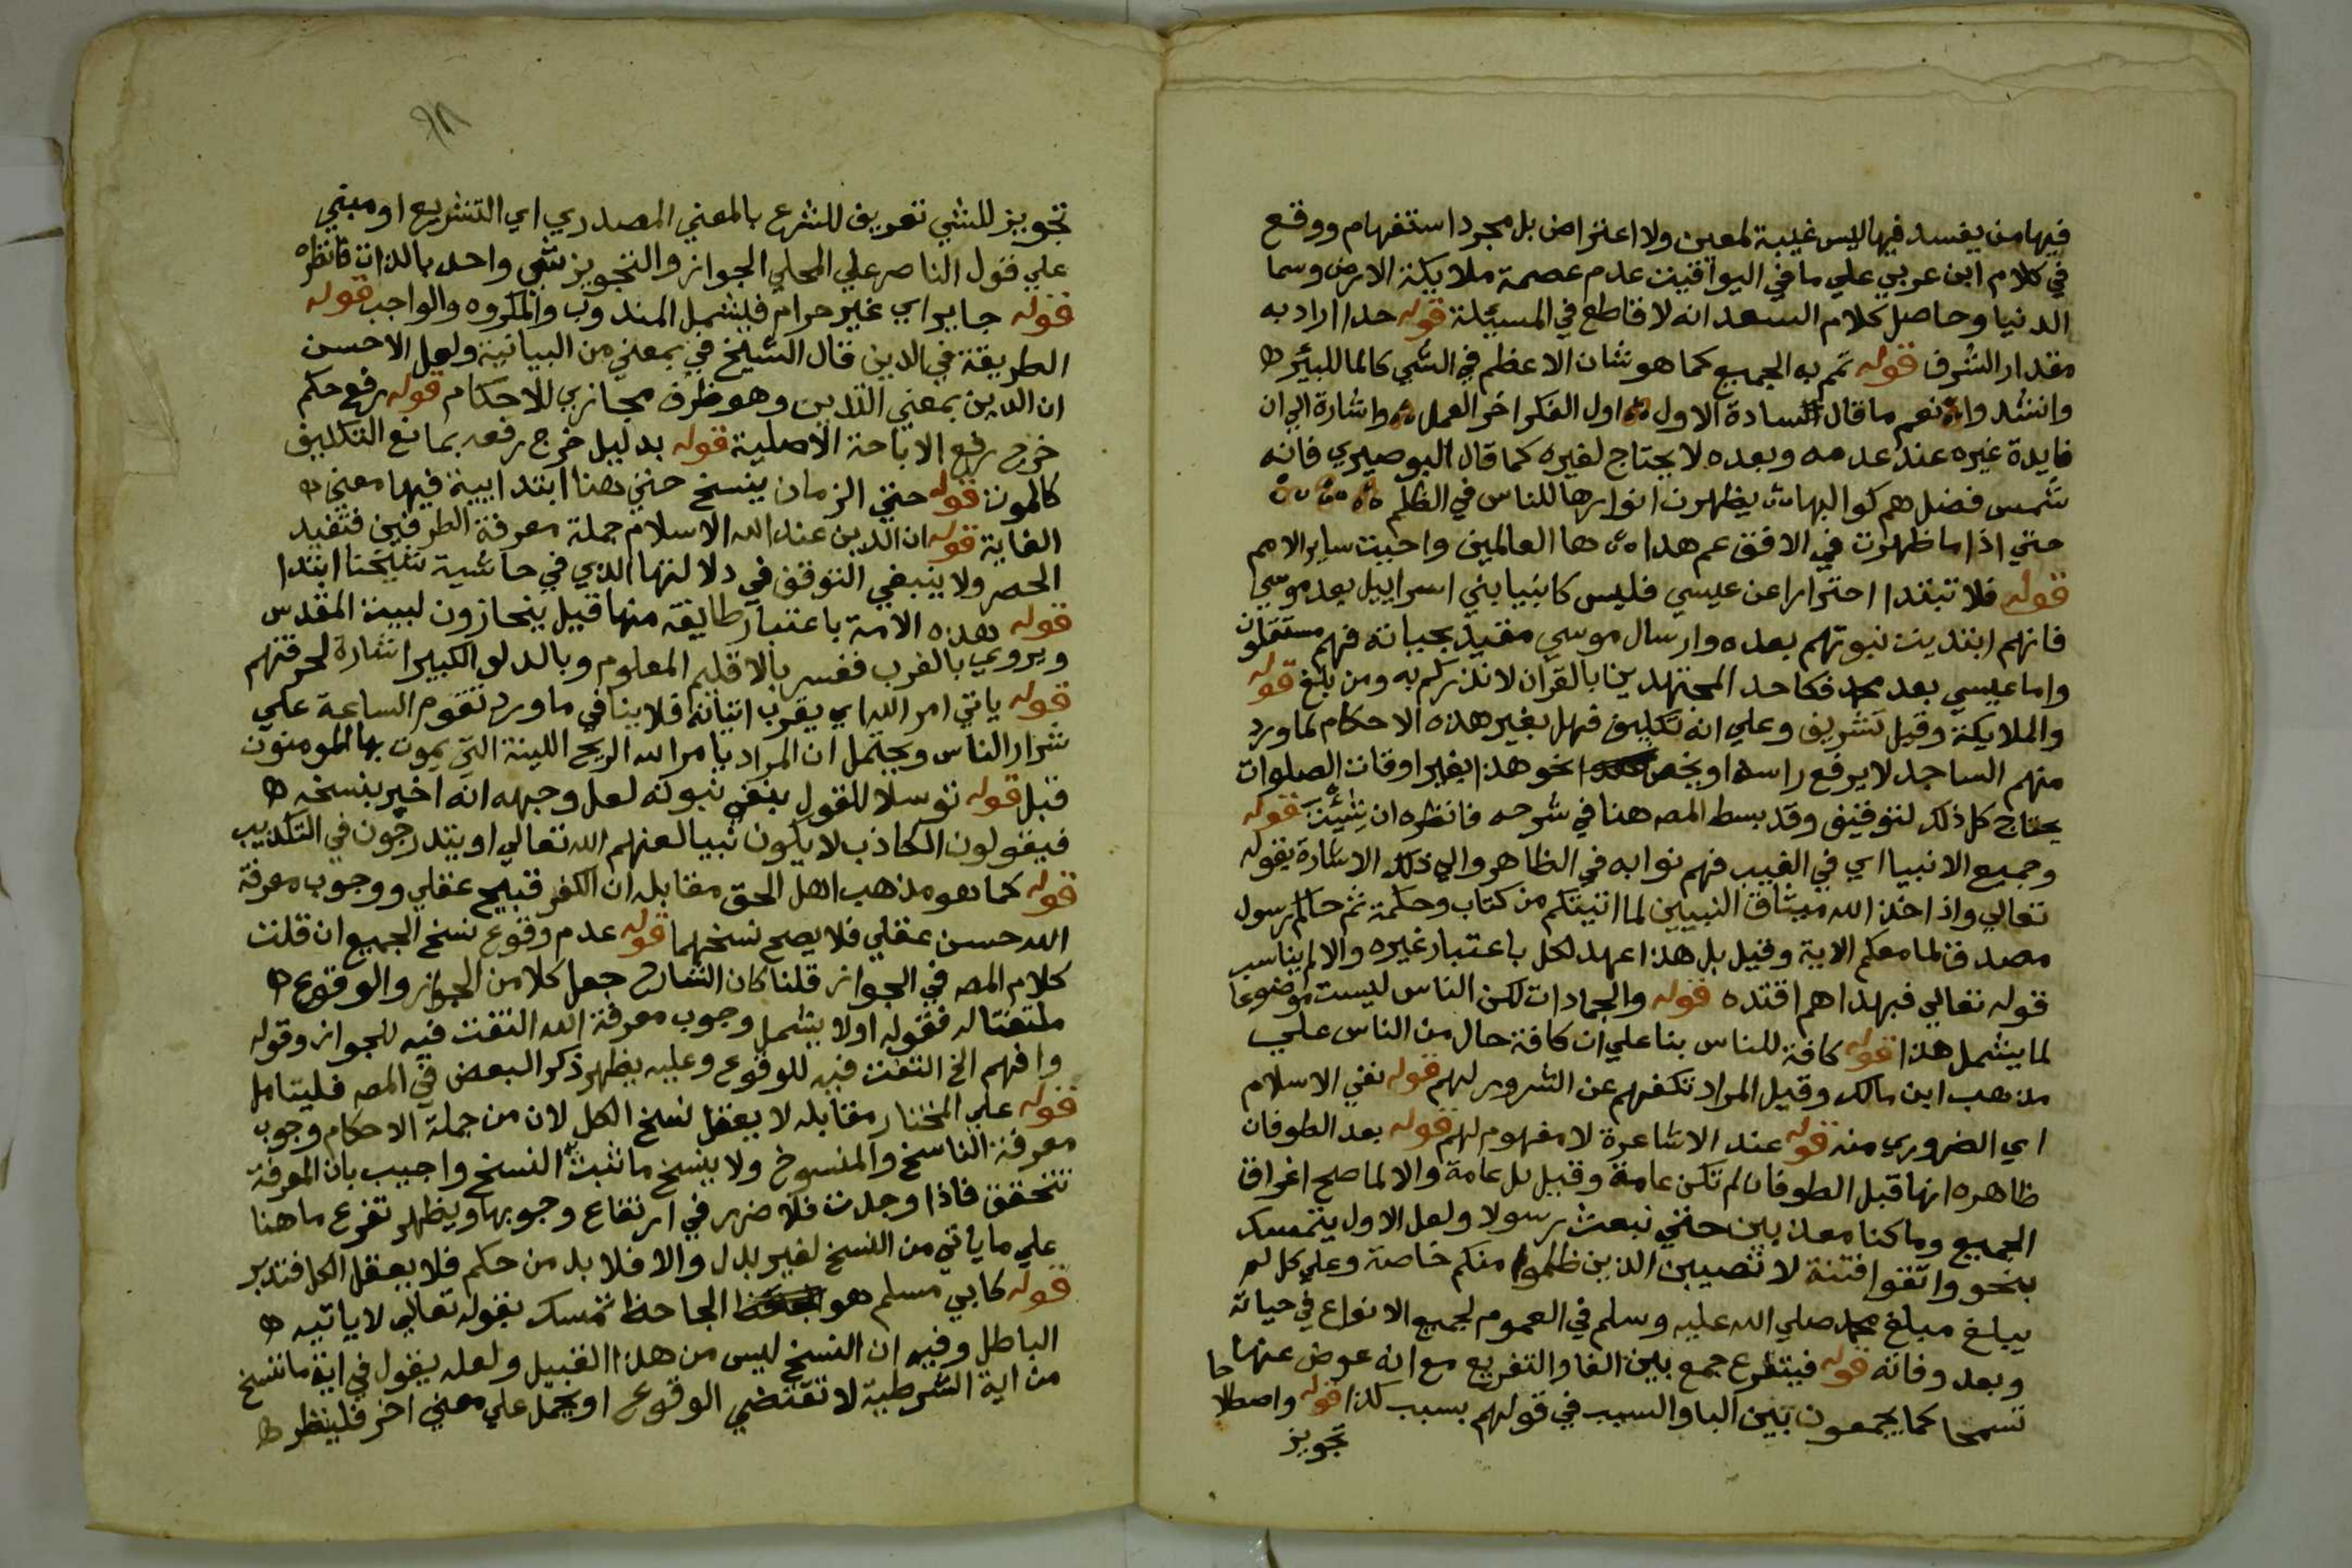 فيها من يفسد فيها ليس غيبة لمعين ولا اعتراض بل مجرد استفهام ووقع
في كلام ابن عربي علي ما في اليواقيت عدم عصمة ملايكة الارض وسما
الدنيا وحاصل كلام السعد انه لا قاطع في المسئلة قوله حدا اراد به
مقدار الشرف قوله تمم به الجميع كما هو شان الاعظم في الشي كالما للبئر
وانشدوا نعم ما قال السادة الاول اول الفكر اخر العمل واشارة الي ان
فايدة غيره عند عدمه وبعده لا يحتاج لغيره كما قال البوصيري فانه
شمس فضل هم كواكبها يظهرن انوارها للناس في الظلم
حتي اذا ما ظهرت في الافق عم هدا ها العالمين واحيت ساير الامم
قوله فلا تبتدا احترارا عن عيسي فليس كانبيا بني اسراييل بعد موسي
فانهم ابتديت نبوتهم بعده وارسال موسي مقيد بحياته فهم مستقلون
واما عيسي بعد محمد فكاحد المجتهدين بالقران لانذركم به ومن بلغ قوله
والملايكة وقيل تشريف وعلي انه تكليف فهل بغير هذه الاحكام لما ورد
منهم الساجد لا يرفع راسه او يخص نحو هذا بغير اوقات الصلوات
يحتاج كل ذلك لتوقيف وقد بسط المصه هنا في شرحه فانظره ان شئت قوله
وجميع الانبيا اي في الغيب فهم نوابه في الظاهر والي ذلك الاشارة بقوله
تعالي واذ اخذ الله ميثاق النبيين لما اتيتكم من كتاب وحكمة ثم جاكم رسول
مصدق لما معكم الاية وقيل بل هذا عهد لكل باعتبار غيره والا لم يناسب
قوله تعالي فبهداهم اقتده قوله والجمادات لكن الناس ليست موضوعا
لما يشمل هذا قوله كافة للناس بنا علي ان كافة حال من الناس علي
مذهب ابن مالك وقيل المراد تكفهم عن الشرور لهم قوله نفي الاسلام
اي الضروري منه قوله عند الاشاعرة لا مفهوم لهم قوله بعد الطوفان
ظاهره انها قبل الطوفان لم تكن عامة وقيل بل عامة والا لما صح اغراق
الجميع وما كنا معذبين حتي نبعث رسولا ولعل الاول يتمسك
بنحو واتقوا فتنة لا تصيبن الذين ظلموا منكم خاصة وعلي كل لم
يبلغ مبلغ محمد صلي الله عليه وسلم في العموم لجميع الانواع في حياته
وبعد وفاته قوله فيتفرع جمع بين الفا والتفريع مع انه عوض عنها
تسمحا كما يجمعون بين البا والسبب في قولهم بسبب كذا قوله واصطلاحا
تجويز
تجويز للشي تعريف للشرع بالمعني المصدري اي التشريع او مبني
علي قول الناصر علي المحلي الجواز والتجويز شي واحد بالذات فانظره
قوله جايز اي غير حرام فيشمل المندوب والمكروه والواجب قوله
الطريقة في الدين قال الشيخ في بمعني من البيانية ولعل الاحسن
ان الدين بمعني التدين وهو ظرف مجازي للاحكام قوله رفع حكم
خرج رفع الاباحة الاصلية قوله بدليل خرج رفعه بمانع التكليف
كالموت قوله حتي الزمان ينسخ حتي هنا ابتدايية فيها معني
الغاية قوله ان الدين عند الله الاسلام جملة معرفة الطرفين فتفيد
الحصر ولا ينبغي التوقف في دلالتها الذي في حاشية شيخنا ابتدا
قوله هذه الامة باعتبار طايفة منها قيل ينحازون لبيت المقدس
ويروي بالغرب ففسر بالاقليم المعلوم وبالدلو الكبير اشارة لحرفتهم
قوله ياتي امر الله اي يقرب اتيانه فلا ينافي ما ورد تقوم الساعة علي
شرار الناس ويحتمل ان المراد بامر الله الريح اللينة التي يموت بها المومنون
قبل قوله توسلا للقول بنفي نبوته لعل وجهه انه اخبر بنسخه
فيقولون الكاذب لا يكون نبيا لعنهم الله تعالي او يتدرجون في التكذيب
قوله كما هو مذهب اهل الحق مقابله ان الكفر قبيح عقلي ووجوب معرفة
الله حسن عقلي فلا يصح نسخهما قوله عدم وقوع نسخ الجميع ان قلت
كلام المصه في الجواز قلنا كان الشارح جعل كلا من الجواز والوقوع
ملتفتا له فقوله اولا يشمل وجوب معرفة الله التفت فيه للجواز وقوله
وافهم الخ التفت فيه للوقوع وعليه يظهر ذكر البعض في المصه فليتامل
قوله علي المختار مقابله لا يعقل نسخ الكل لان من جملة الاحكام وجوب
معرفة الناسخ والمنسوخ ولا ينسخ ما تثبت النسخ واجيب بان المعرفة
تتحقق فاذا وجدت فلا ضرر في ارتفاع وجوبها ويظهر تفرع ما هنا
علي ما ياتي من النسخ لغير بدل والا فلا بد من حكم فلا يعقل الكل فتدبر
قوله كابي مسلم هو الجاحظ تمسك بقوله تعالي لا ياتيه
الباطل وفيه ان النسخ ليس من هذا القبيل ولعله يقول في اية ما ننسخ
من اية الشرطية لا تقتضي الوقوع او يحمل علي معني اخر فلينظر